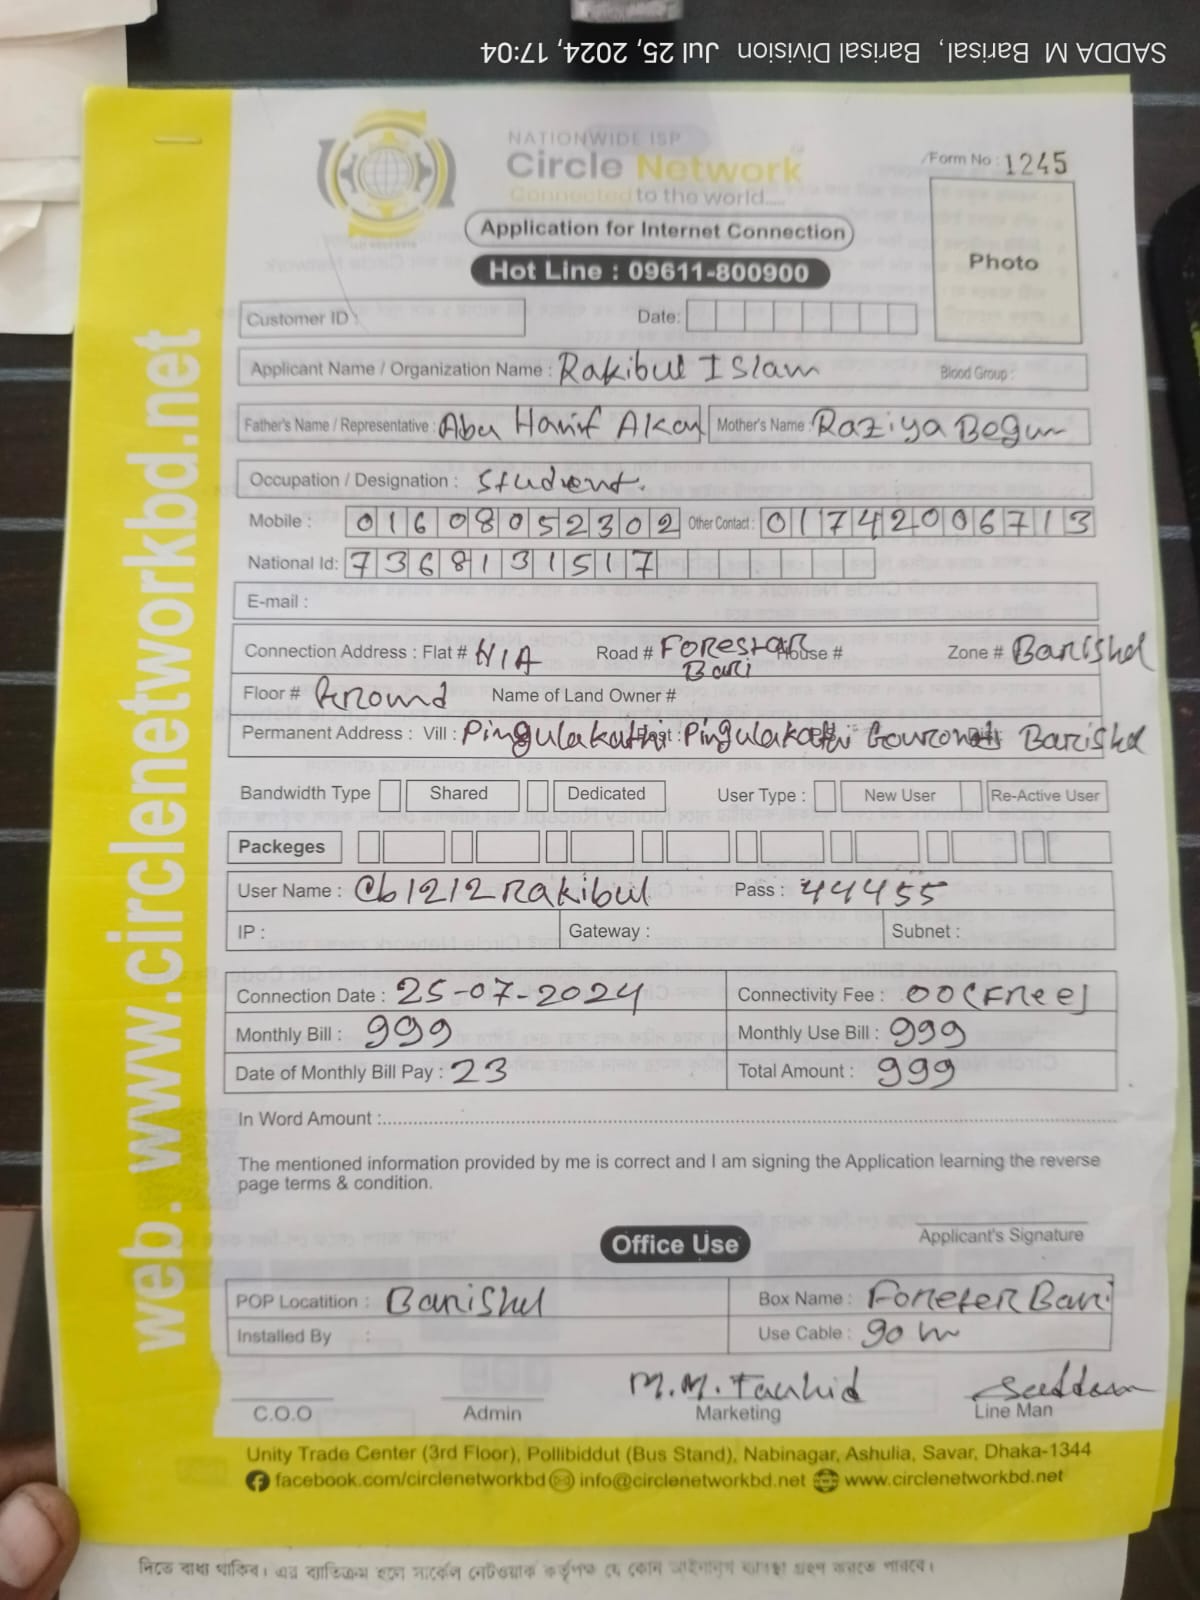 SADDA M Barisal, Barisal Division Jul 25, 2024, 17:04
NATIONWIDE ISP
Circle Network
Connected to the world.....
Form No : 1245
Application for Internet Connection
Hot Line : 09611-800900
Photo
Customer ID :
Date:
Applicant Name / Organization Name : Rakibul Islam Blood Group :
Father's Name / Representative : Abu Hanif Akon Mother's Name : Raziya Begum
Occupation / Designation : Student.
Mobile : 01608052302 Other Contact : 01742006713
National Id: 7368131517
E-mail :
Connection Address : Flat # N/A Road # Forestar Bari House # Zone # Barishal
Floor # Ground Name of Land Owner #
Permanent Address : Vill : Pingulakathi Post : Pingulakathi Barishal
Bandwidth Type Shared Dedicated User Type : New User Re-Active User
Packeges
User Name : cb1212rakibul Pass : 44455
IP : Gateway : Subnet :
Connection Date : 25-07-2024 Connectivity Fee : 00 (Free)
Monthly Bill : 999 Monthly Use Bill : 999
Date of Monthly Bill Pay : 23 Total Amount : 999
In Word Amount :
The mentioned information provided by me is correct and I am signing the Application learning the reverse
page terms & condition.
Applicant's Signature
Office Use
POP Locatition : Barishal Box Name : Forester Bari
Installed By : Use Cable : 90 m
M.M. Tauhid Saddam
C.O.O Admin Marketing Line Man
Unity Trade Center (3rd Floor), Pollibiddut (Bus Stand), Nabinagar, Ashulia, Savar, Dhaka-1344
facebook.com/circlenetworkbd info@circlenetworkbd.net www.circlenetworkbd.net
web. www.circlenetworkbd.net
দিতে বাধ্য থাকিব। এর ব্যতিক্রম হলে সার্কেল নেটওয়ার্ক কর্তৃপক্ষ যে কোন আইনানুগ ব্যবস্থা গ্রহণ করতে পারবে।